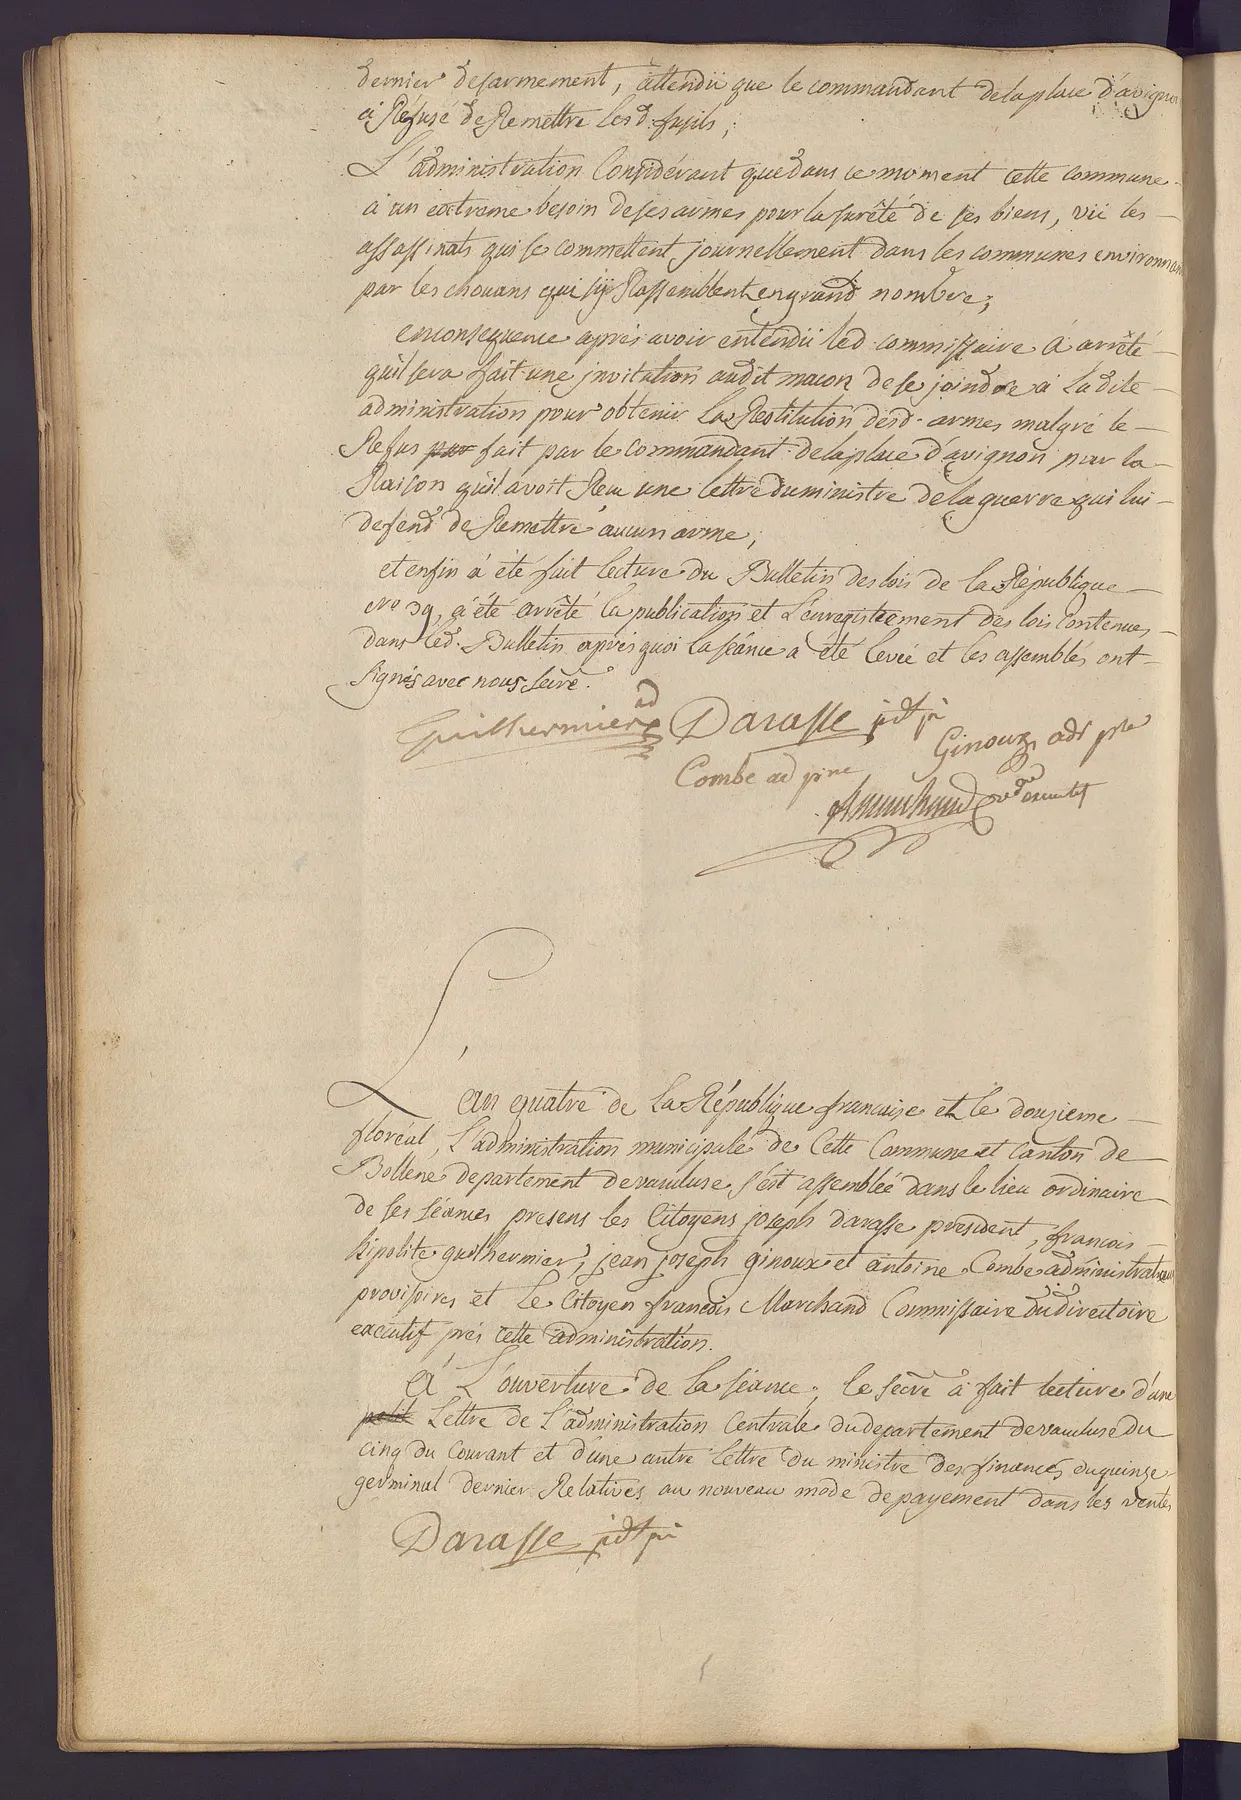 dernier desarmement, attendû que le commandant delaplace d'avignon
à Réfusé de Remettre lesd. fusils;
L'administration Considérant que dans ce moment cette commune
à un extreme besoin de ses armes pour la sureté de ses biens, vû les
assassinats qui se commettent journellement dans les communes environnan
par les chouans qui s'ÿ Rassemblent en grand nombre;
en consequence après avoir entendû led. commissaire à arrêté
qu'il sera fait une invitation audit macon de se joindre à ladite
administration pour obtenir la Restitution desd. armes malgré le
Refus par fait par le commandant delaplace d'avignon par la
Raison qu'il avoit Reçu une lettre du ministre de la guerre qui lui
defend de Remettre aucun arme;
et enfin à été fait lecture du Bulletin des lois de la République
N° 39, à été arrêté la publication et l'enregistrement des lois contenues
dans led. Bulletin après quoi la séance a été levée et les assemblés ont
signés avec nous secre.
Guilhermier ad
Darasse pdt pr
Ginoux adr pre
Combe ad pre
Marchand
L'an quatre de la République française et le dousieme
floréal, L'administration municipale de Cette Commune et canton de
Bollene departement devaucluse s'est assemblée dans le lieu ordinaire
de ses séances presens les Citoyens joseph darasse president, francois
hipolite guilhermier, jean joseph Ginoux et antoine Combe administrateurs
provisoires et le Citoyen francois Marchand Commissaire du directoire
executif près cette administration.
A L'ouverture de la séance, le secre à fait lecture d'une
petit Lettre de l'administration Centrale du departement devaucluse du
cinq du Courant et d'une autre lettre du ministre des finances du quinze
germinal dernier Relatives au nouveau mode de payement dans les ventes
Darasse pdt pr